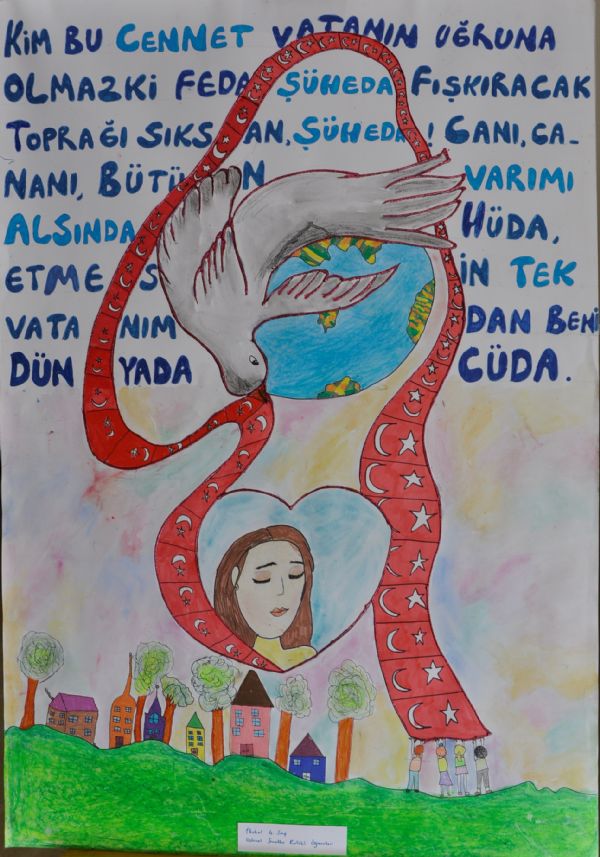 KİM BU CENNET VATANIN UĞRUNA
OLMAZKİ FEDA ŞÜHEDA FIŞKIRACAK
TOPRAĞI SIKSAN, ŞÜHEDA! CANI, CA-
NANI, BÜTÜN VARIMI
ALSINDA HÜDA,
ETMESİN TEK
VATANIMDAN BENİ
DÜNYADA CÜDA.